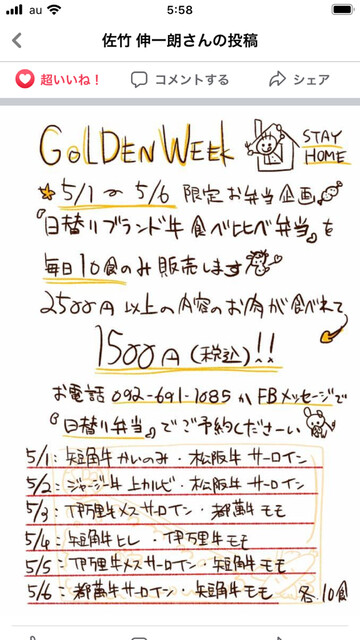 au 5:58
佐竹 伸一朗さんの投稿
超いいね！ コメントする シェア
GOLDEN WEEK
STAY HOME
5/1〜5/6 限定お弁当企画
『日替りブランド牛食べ比べ弁当』を
毎日10食のみ販売します
2500円以上の内容のお肉が食べれて
1500円(税込)!!
お電話 092-691-1085 か FBメッセージで
『日替り弁当』でご予約くださーい
5/1：短角牛かいのみ・松阪牛サーロイン
5/2：ジャージー牛上カルビ・松阪牛サーロイン
5/3：伊万里牛メスサーロイン・都萬牛モモ
5/4：短角牛ヒレ・伊万里牛モモ
5/5：伊万里牛メスサーロイン・短角牛モモ
5/6：都萬牛サーロイン・短角牛モモ 各10食